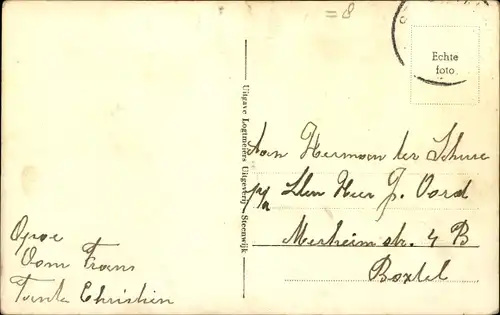 = 8
Echte
foto
Uitgave Logtmeiers Uitgeverij - Steenwijk
Aan Herman ter Schure
p/a den Heer J. Oord
Merheimstr. 4 B
Boxtel
Opoe
Oom Frans
Tante Christien